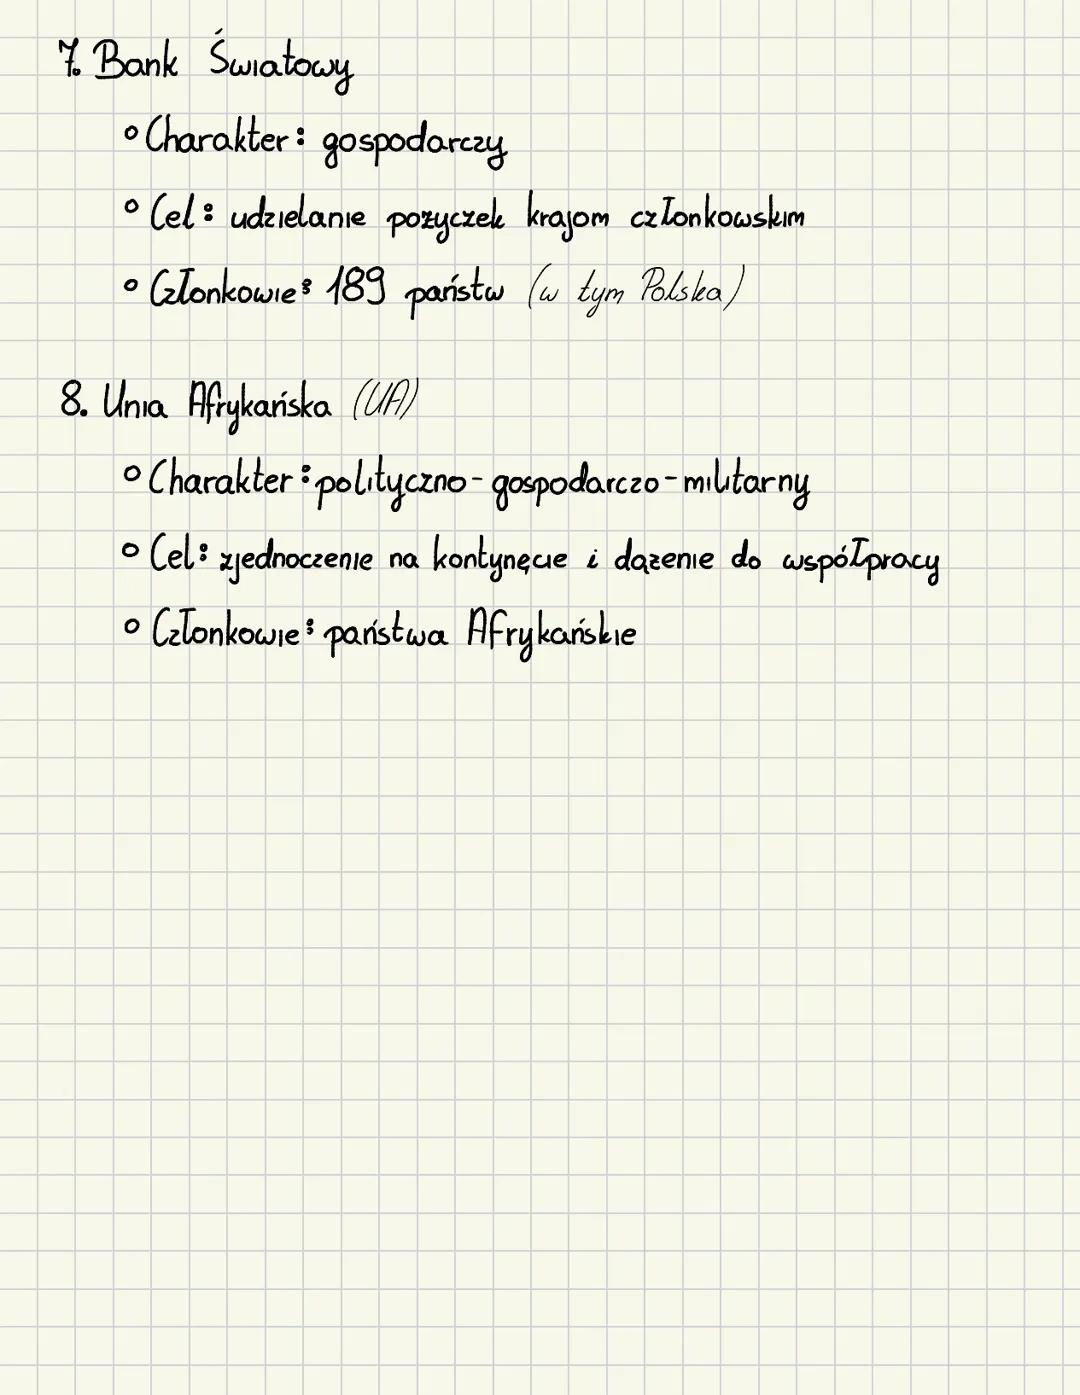 7. Bank Światowy
° Charakter: gospodarczy
° Cel: udzielanie pożyczek krajom członkowskim
° Członkowie: 189 państw (w tym Polska)
8. Unia Afrykańska (UA)
° Charakter: polityczno-gospodarczo-militarny
° Cel: zjednoczenie na kontynęcie i dążenie do współpracy
° Członkowie: państwa Afrykańskie